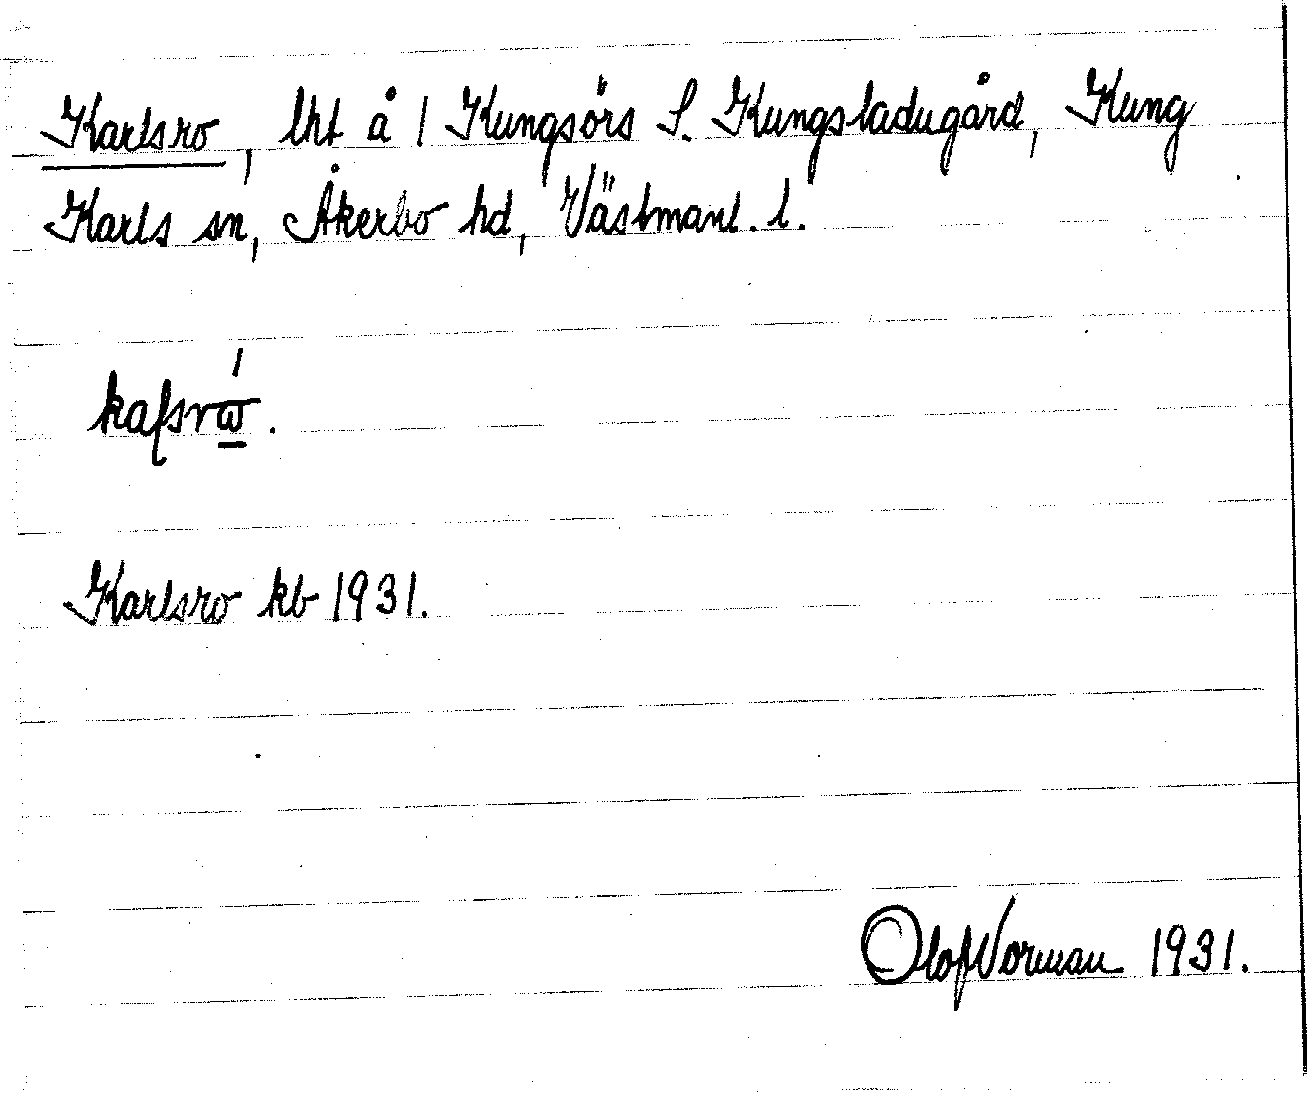 Karlsro, lht å 1 Kungsörs S. Kungsladugård, Kung
Karls sn, Åkerbo hd, Västmanl. l.
Karlsro kb 1931.
Olof Norman 1931.